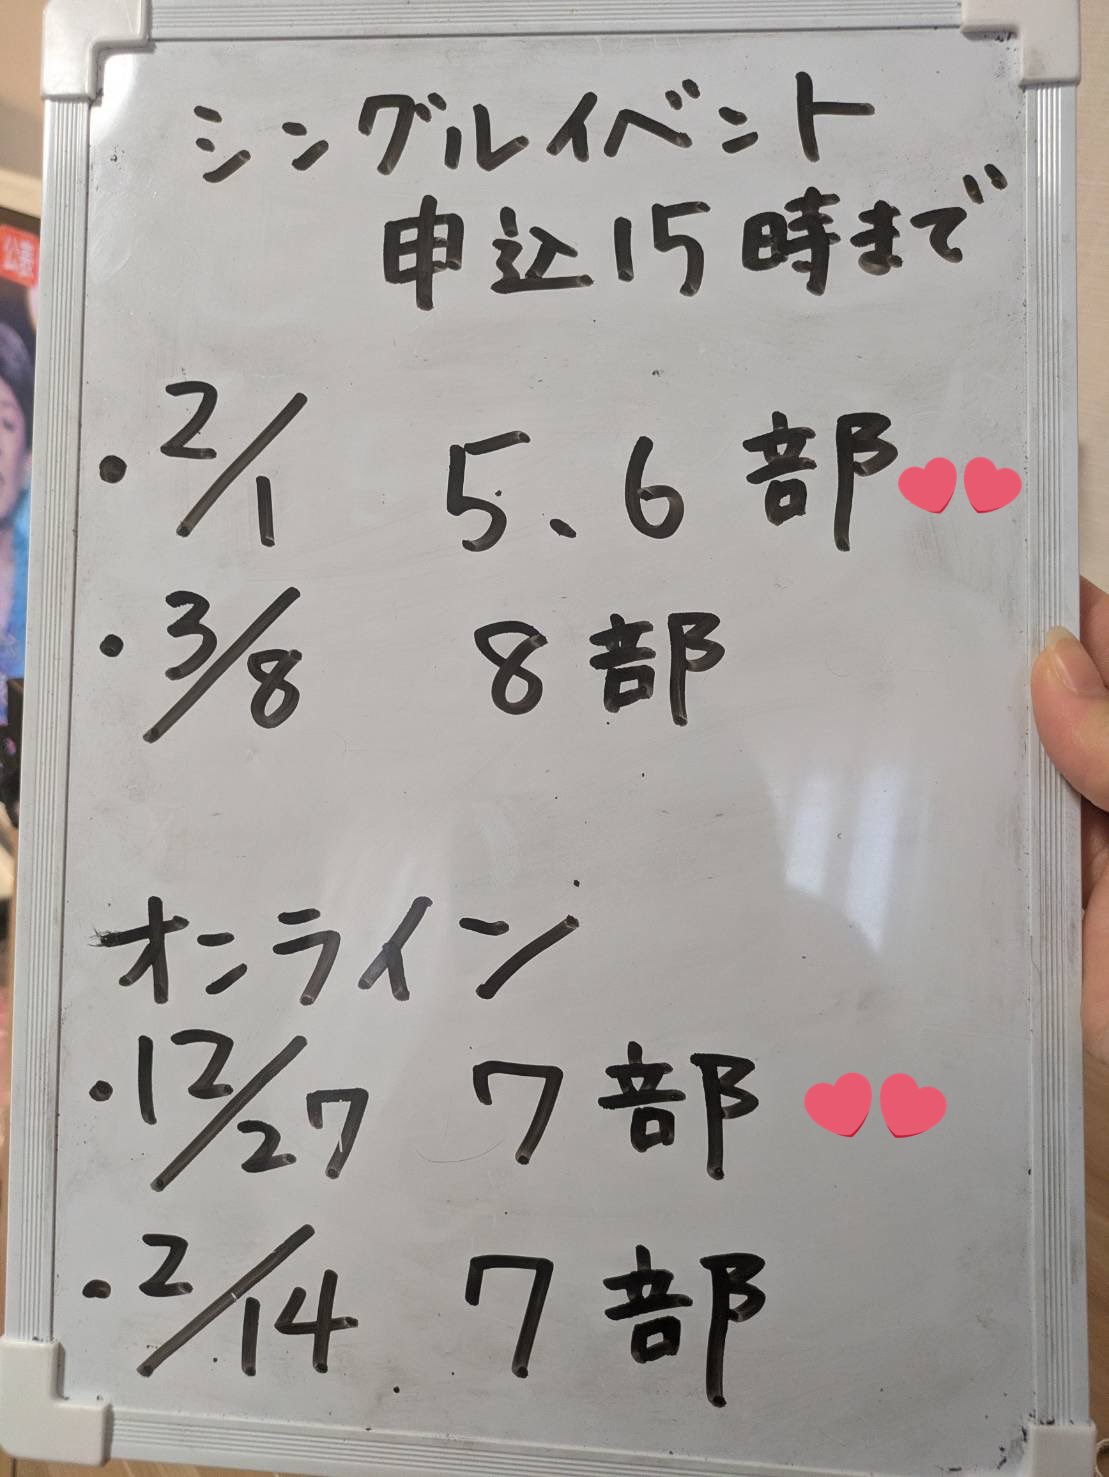 シングルイベント
申込15時まで
・2/1 5、6部
・3/8 8部
オンライン
・12/27 7部
・2/14 7部